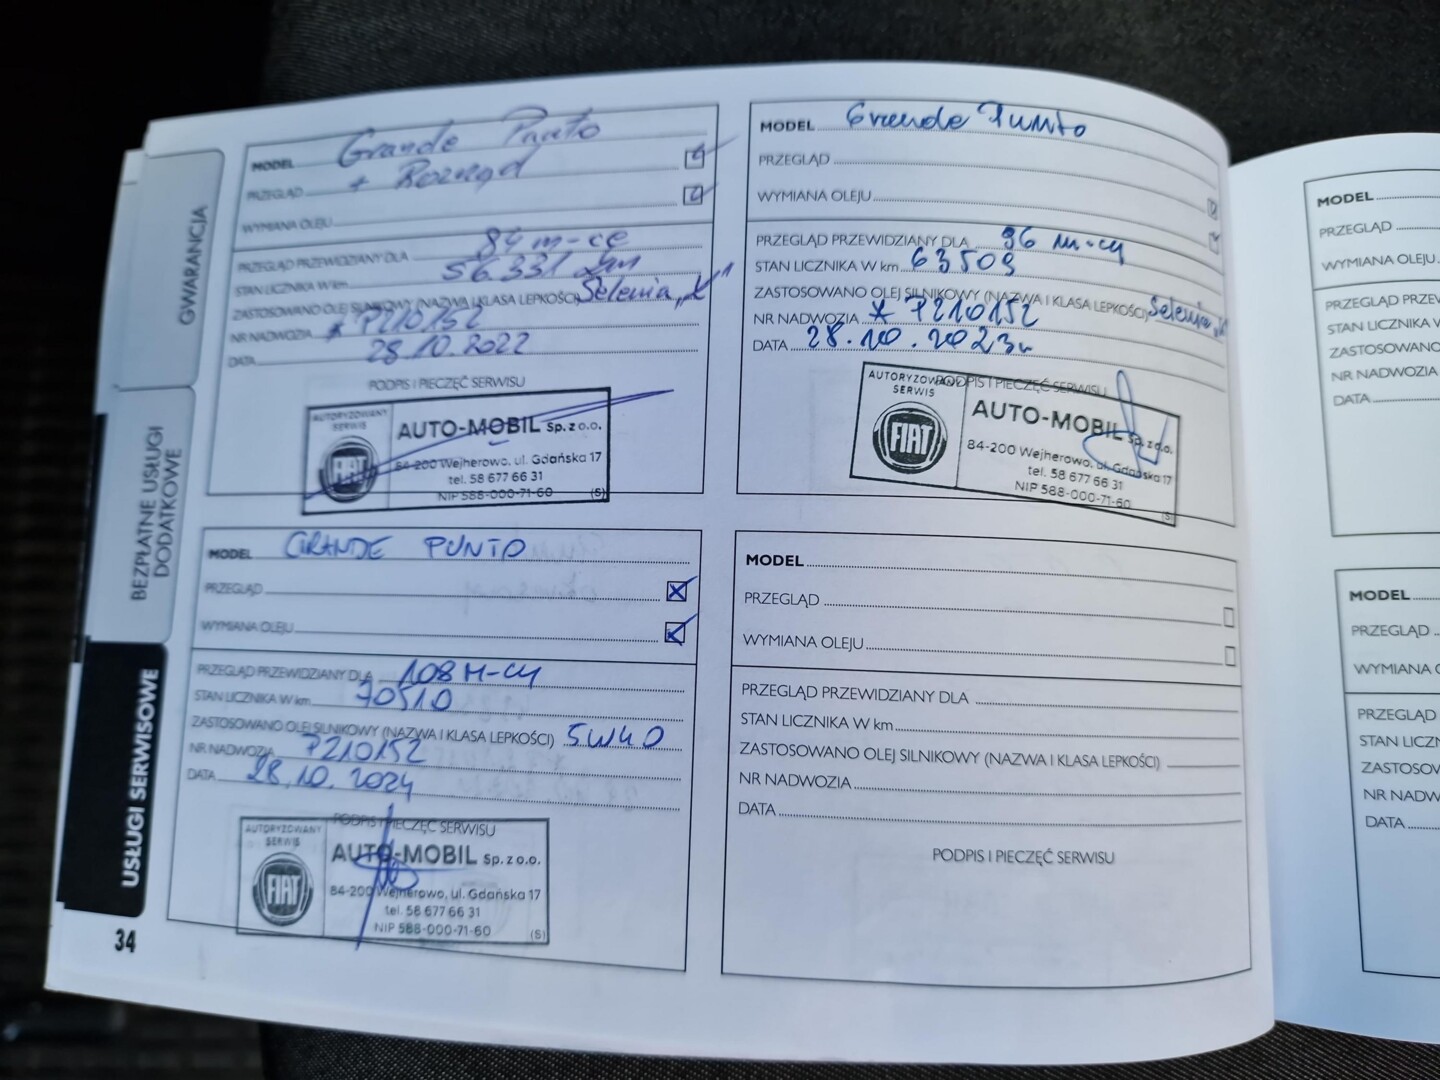 GWARANCJA
BEZPŁATNE USŁUGI
DODATKOWE
USŁUGI SERWISOWE
34
MODEL Grande Punto
PRZEGLĄD + Rozrząd
WYMIANA OLEJU
PRZEGLĄD PRZEWIDZIANY DLA 84 m-ce
STAN LICZNIKA W km 56.331 km
ZASTOSOWANO OLEJ SILNIKOWY (NAZWA I KLASA LEPKOŚCI) Selenia
NR NADWOZIA * 7210152
DATA 28.10.2022
PODPIS I PIECZĘĆ SERWISU
AUTORYZOWANY
SERWIS
FIAT
AUTO-MOBIL Sp. z o.o.
84-200 Wejherowo, ul. Gdańska 17
tel. 58 677 66 31
NIP 588-000-71-60 (S)
MODEL Grande Punto
PRZEGLĄD
WYMIANA OLEJU
PRZEGLĄD PRZEWIDZIANY DLA 96 m-cy
STAN LICZNIKA W km 63509
ZASTOSOWANO OLEJ SILNIKOWY (NAZWA I KLASA LEPKOŚCI) Selenia
NR NADWOZIA * 7210152
DATA 28.10.2023r
PODPIS I PIECZĘĆ SERWISU
AUTORYZOWANY
SERWIS
FIAT
AUTO-MOBIL Sp. z o.o.
84-200 Wejherowo, ul. Gdańska 17
tel. 58 677 66 31
NIP 588-000-71-60 (S)
MODEL GRANDE PUNTO
PRZEGLĄD
WYMIANA OLEJU
PRZEGLĄD PRZEWIDZIANY DLA 108 M-CY
STAN LICZNIKA W km 70510
ZASTOSOWANO OLEJ SILNIKOWY (NAZWA I KLASA LEPKOŚCI) 5W40
NR NADWOZIA 7210152
DATA 28.10.2024
PODPIS I PIECZĘĆ SERWISU
AUTORYZOWANY
SERWIS
FIAT
AUTO-MOBIL Sp. z o.o.
84-200 Wejherowo, ul. Gdańska 17
tel. 58 677 66 31
NIP 588-000-71-60 (S)
MODEL
PRZEGLĄD
WYMIANA OLEJU
PRZEGLĄD PRZEWIDZIANY DLA
STAN LICZNIKA W km
ZASTOSOWANO OLEJ SILNIKOWY (NAZWA I KLASA LEPKOŚCI)
NR NADWOZIA
DATA
PODPIS I PIECZĘĆ SERWISU
MODEL
PRZEGLĄD
WYMIANA OLEJU
PRZEGLĄD PRZEW
STAN LICZNIKA W
ZASTOSOWANO
NR NADWOZIA
DATA
MODEL
PRZEGLĄD
WYMIANA O
PRZEGLĄD
STAN LICZN
ZASTOSOW
NR NADW
DATA